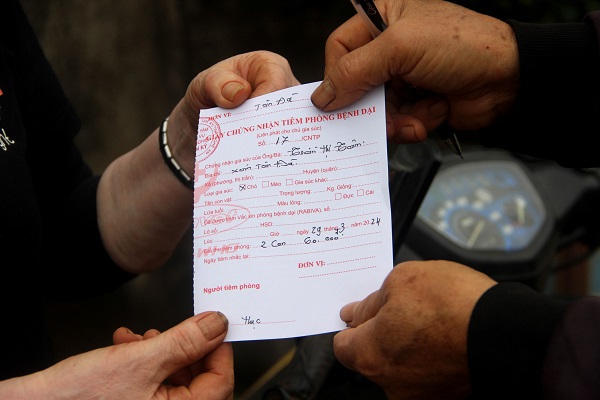 ĐƠN VỊ: Tản Đà
GIẤY CHỨNG NHẬN TIÊM PHÒNG BỆNH DẠI
(Liên phát cho chủ gia súc)
Số: 17 /CNTP
Chứng nhận gia súc của Ông/Bà: Trần Thị
Địa chỉ: xóm Tản Đà
Xã (phường, thị trấn): Huyện (quận):
Loại gia súc: x Chó Mèo Gia súc khác:
Tên con vật: Trọng lượng: Kg. Giống:
Lứa tuổi: Màu lông: Đực Cái
Đã được tiêm Vắc xin phòng bệnh dại (RABIVA), số
Lô số: HSD:
Lúc: Giờ ngày 29 tháng 3 năm 2024
Giá tiêm phòng: 2 con 60.000đ
Ngày tiêm nhắc lại:
ĐƠN VỊ:
Người tiêm phòng